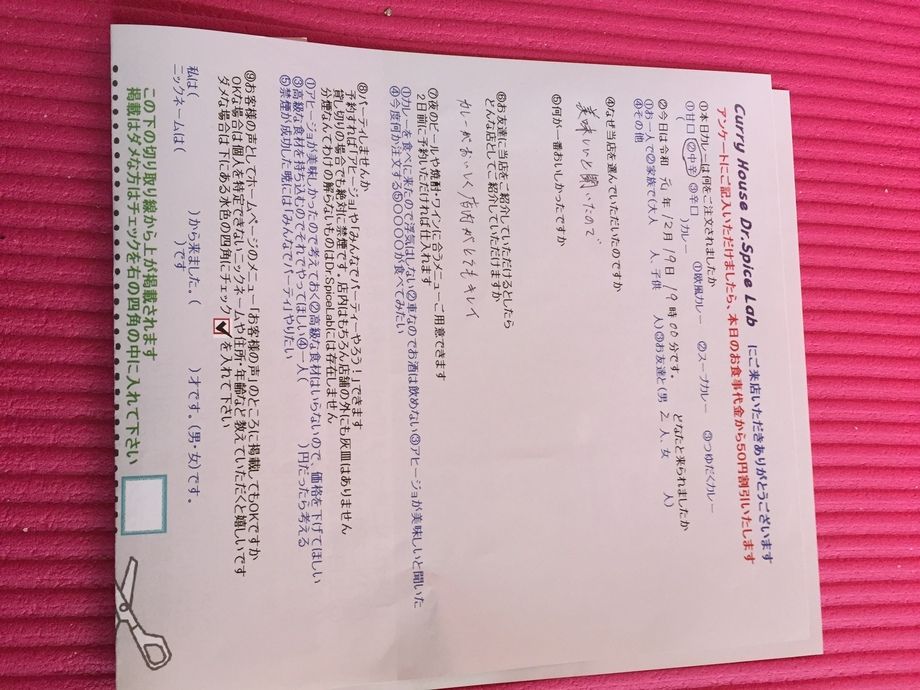 Curry House Dr.Spice Lab にご来店いただきありがとうございます
アンケートにご記入いただけましたら、本日のお食事代金から50円割引いたします
①本日カレーは何をご注文されましたか
( )カレー ①欧風カレー ②スープカレー ③つゆだくカレー
①甘口 ②中辛 ③辛口
②今日は令和 元年 12月 19日 19時 00分です。 どなたと来られましたか
①お一人で②ご家族で(大人 人、子供 人)③お友達と(男 2人、女 人)
④その他
④なぜ当店を選んでいただいたのですか
美味しいと聞いたので
⑤何が一番おいしかったですか
⑥お友達に当店をご紹介していただけるとしたら
どんな店としてご紹介していただけますか
カレーがおいしく店内がとてもキレイ
⑦夜のビールや焼酎・ワインに合うメニューご用意できます
2日前に予約いただければ仕入れます
①カレーを食べに来たので浮気はしない②車なのでお酒は飲めない③アヒージョが美味しいと聞いた
④今度何か注文する⑤〇〇〇〇が食べてみたい
⑧パーティしませんか
予約すれば「アヒージョ」や「みんなでパーティーやろう!」できます
貸し切りの場合でも絶対に禁煙です・店内はもちろん店舗の外にも灰皿はありません
分煙なんてわけの解らないものはDr.SpiceLabには存在しません
①アヒージョが美味しかったので考えておく②高級な食材はいらないので、価格を下げてほしい
③高級な食材を持ち込むのでそれでやってほしい④一人( )円だったら考える
⑤禁煙が成功した晩には「みんなでパーティ」やりたい
⑨お客様の声としてホームページのメニュー「お客様の声」のところに掲載してもOKですか
OKな場合は個人を特定できないニックネームや住所・年齢など教えていただくと嬉しいです
ダメな場合は 下にある水色の四角にチェック✓を入れて下さい
私は( )から来ました。( )才です。(男・女)です。
ニックネームは( )です
この下の切り取り線から上が掲載されます
掲載はダメな方はチェックを右の四角の中に入れて下さい